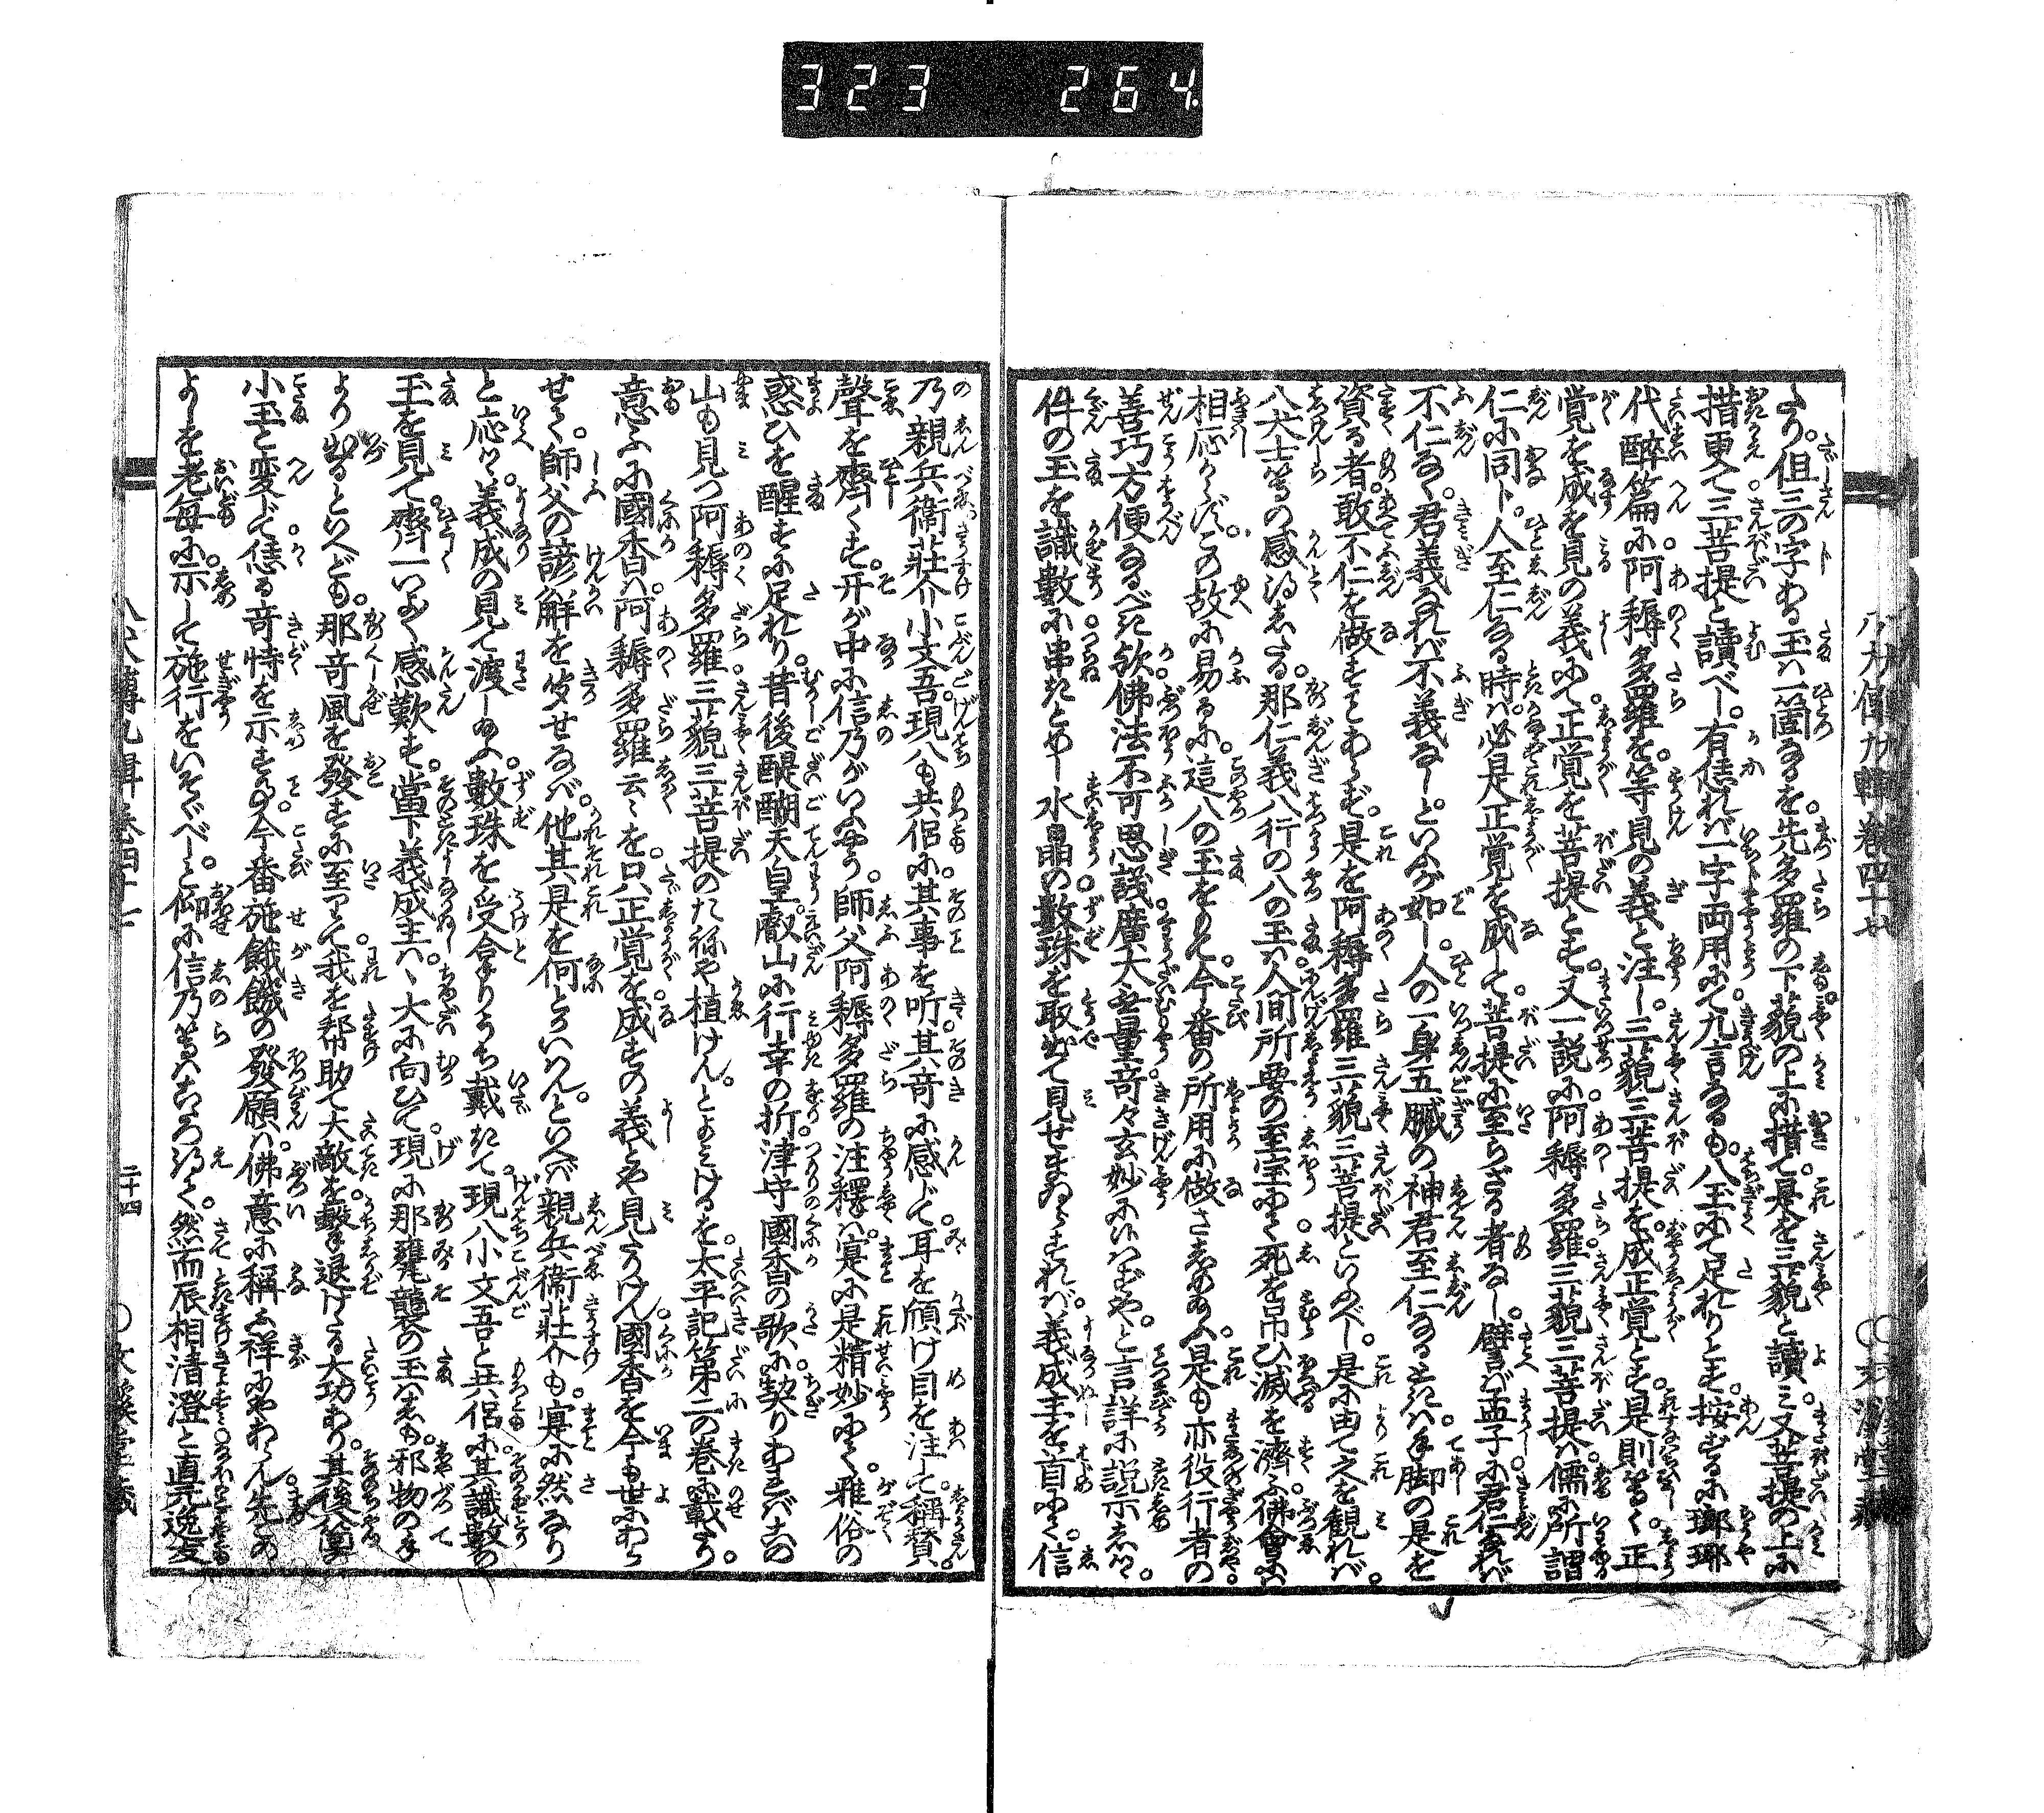 323 264
たり。但三の字ある玉は一箇なるを。先多羅の下藐の上に措て。是を三藐と讀み又菩提の上に
措更て。三菩提と讀べし。有恁れば一字両用にて九言なるも。八玉にて足れりとす。按ずるに瑯琊
代醉篇に。阿耨多羅を。等見の義と注し。三藐三菩提を。成正覚とす。是則等く正
覚を成を見の義にて。正覚を菩提とす。又一説に。阿耨多羅三藐三菩提は。儒に所謂
仁に同じ。人至仁なる時は。必是正覚を成して。菩提に至らざる者なし。譬ば孟子に。君仁なれば
不仁なく。君義なれば不義なしといふが如し。人の一身五臓の神君至仁なるときは。手脚の是を
資る者。敢不仁を做すことあらず。是を阿耨多羅三藐三菩提といふべし。是に由て之を観れば。
八犬士等の感得したる。那仁義八行の八の玉は。人間所要の至宝にて。死を弔ひ滅を濟ふ佛會には
相応からず。この故に易るに。這八の玉をもて。今番の所用に做さしめ給ふ。是も亦役行者の
善巧方便なるべき歟。佛法不可思議。廣大無量。奇々玄妙に侍らずや。と言詳に説示しつ。
件の玉を識數に串きとめし。水晶の數珠を取出て見せまゐらすれば。義成主を首にて。信
乃親兵衞荘介小文吾。現八も共侶に。其事を听其奇に感じて。耳を傾け目を注て稱賛。
聲を齊くす。开が中に信乃がいふやう。師父阿耨多羅の注釋は。寔に是精妙にて。雅俗の
惑ひを醒すに足れり。昔後醍醐天皇。叡山に行幸の折。津守國香の歌に。契りあればこの
山も見つ阿耨多羅三藐三菩提のたねや植けん。とよみけるを。太平記第二の巻に載たり。
意ふに國香は。阿耨多羅云々を。只正覚を成すの義とや見たりけん。國香を今も世にあら
せて。師父の諺解を笈せなば。他其是を何とかいはん。といへば親兵衞荘介も。寔に然なり
と応へつ。義成の見て渡し給ふ。數珠を受合ひうち戴きて。現八小文吾と共侶に。其識數の
玉を見て。齊一いよゝ感歎す。當下義成主は。、大に向ひて。現に那甕襲の玉はしも。邪物の手
より出るといへども。那奇風を發すに至りて。我を幇助て大敵を。撃退けたる大功あり。其後八箇の
小玉と変じて。恁る奇特を示すこと。今番施餓鬼の發願は。佛意に稱ふ祥にやあらん。先この
よしを老母に。示して施行をいそぐべし。と仰に信乃等はこゝろ得て。然而辰相清澄と直元逸友
八犬傳九輯巻四十七
二十四